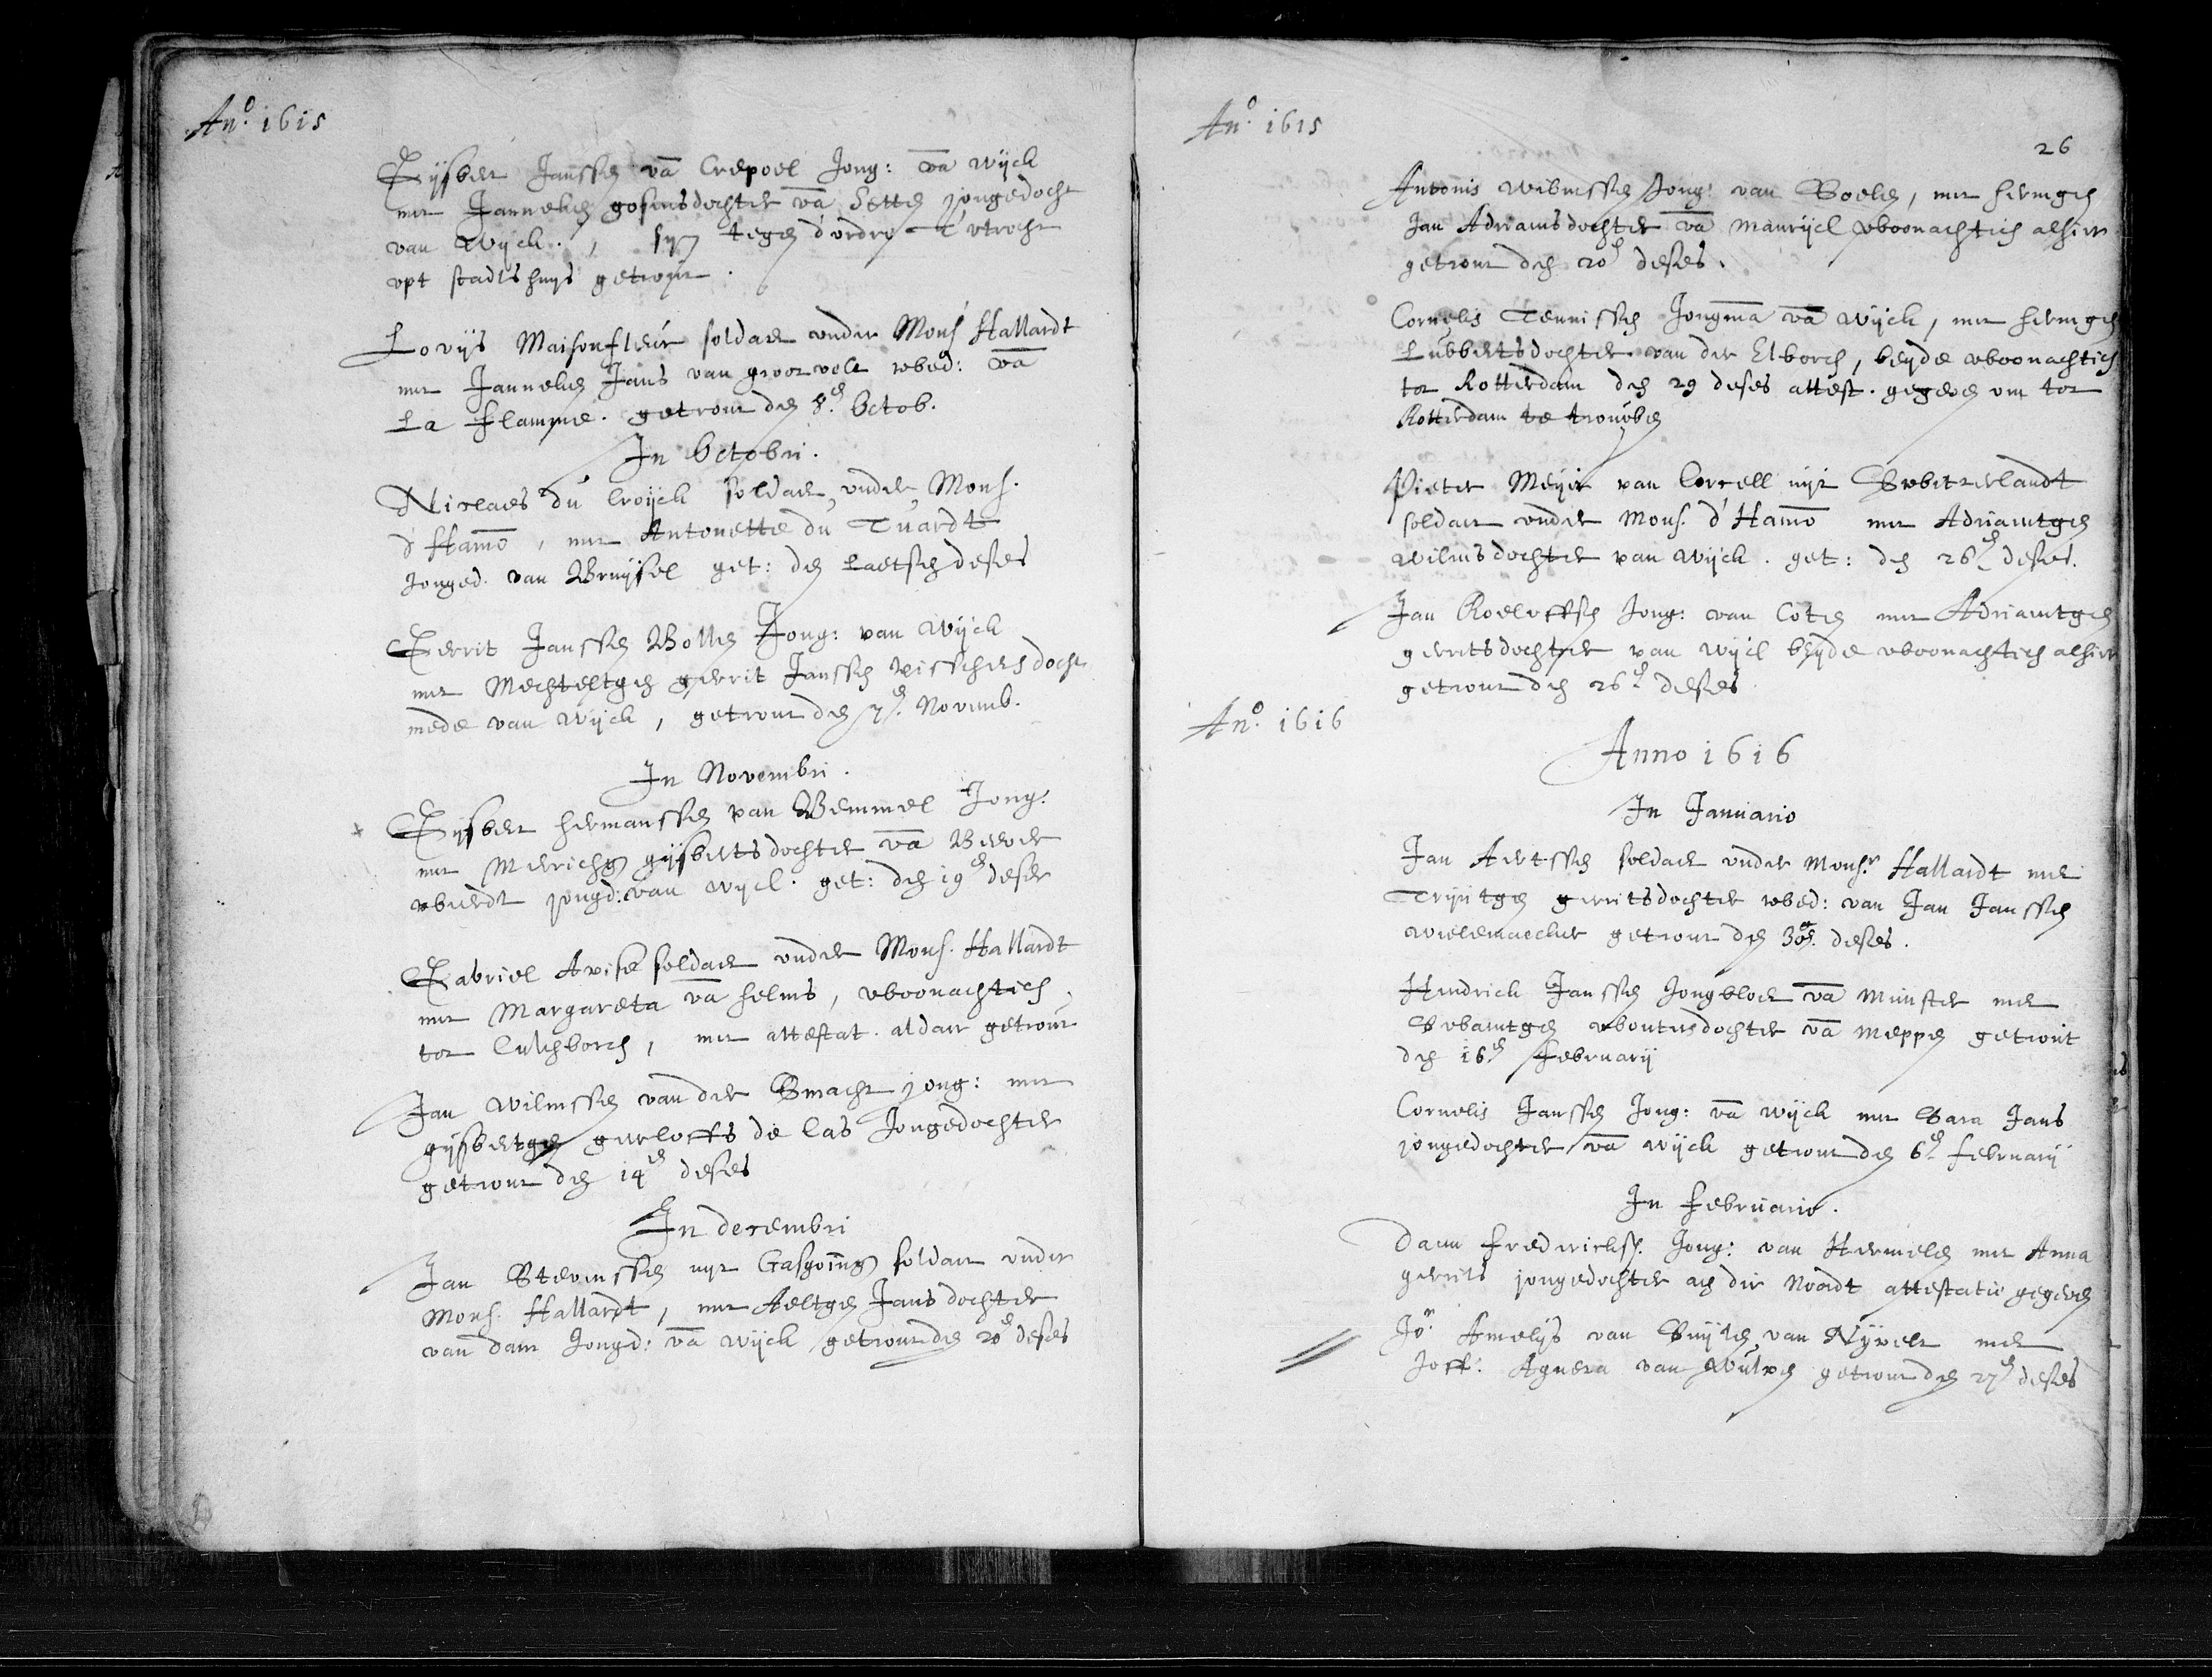 Ano. 1615
Gijsbert Janssen vā Crepoel Jong: vā Wijck
met Janneken gosensdochter vā Setten jongedocht
van Wijck, sijn tegen d'ordre t'Utrecht
opt stadtshuijs getrout.
Lovijs Maisonfleur soldaet onder Mons Hallardt
met Janneken Jans van groot wed: vā
La flamme. getrout den 8en. Octob.
In Octobri.
Niclaes du Croijck soldaet onder Mons.
d'Hamō, met Antonette du Tuardt
Jonged. van Bruijsel get: den Laetsten deses
Gerrit Janssen Bollen Jong: van Wijck
met Mechteltgen gerrit Janssen visschers docht
mede van Wijck, getrout den 7en. Novemb.
In Novembri.
Gijsbert hermanssen van Bemmel Jong:
met Merrichgen gijsbertsdochter vā
jongd: van Wijck. get: den 19en deser
Gabriel Avise soldaet onder Mons. Hallardt
met Margareta vā helms, woonachtich
tot Culenborch, met attestat. aldaer getrout
Jan Wilmssen van der Smacht jong: met
gijsbertgen geerloffs de Cas Jongedochter
getrout den 14en deses
In decembri
Jan Stevenssen uijt Gasgoing soldaet onder
Mons. Hallardt, met Aeltgen Jansdochter
van dam Jongd: vā Wijck getrout den 20en deses
Ano. 1615
26
Antonis Wilmssen Jong: van Soelen, met hermgen
Jan Adriaensdochter vā Maurijck woonachtich alhier
getrout den 20en deses.
Cornelis Teunissen Jongmā vā Wijck, met hermgen
Lubbertsdochter van der Elborch, beyde woonachtich
tot Rotterdam den 29 deses attest. gegeven om tot
Rotterdam te trouwen
Pieter Meyer van Correll uijt Switzerlandt
soldaet onder Mons. d'Hamō met Adriaentgen
Wilmsdochter van Wijck. get: den 26en deses.
Jan Roeloffsen Jong: van Coten met Adriaentgen
gerritsdochter van Wijck beyde woonachtich alhier
getrout den 26en deses
Ano. 1616
Anno 1616
In Januario
Jan Aertssen soldaet onder Monsr. Hallardt met
Trijntgen gerritsdochter wed: van Jan Janssen
Wielemaecker getrout den 30en. deses.
Hendrick Janssen Jongbloet vā Munster met
Swaentgen woutersdochter vā Meppen getrout
den 16en February
Cornelis Janssen Jong: vā Wijck met Sara Jans
jongedochter vā Wijck getrout den 6en February
In Februario.
Daem Fredericksz. Jong: van Hermelen met Anna
gerrits jongedochter aen die Noordt attestatie gegeven
Jor. Amelijs van Zuijlen van Nijvelt met
Joff: Agnera van Wulven getrout den 27en deses